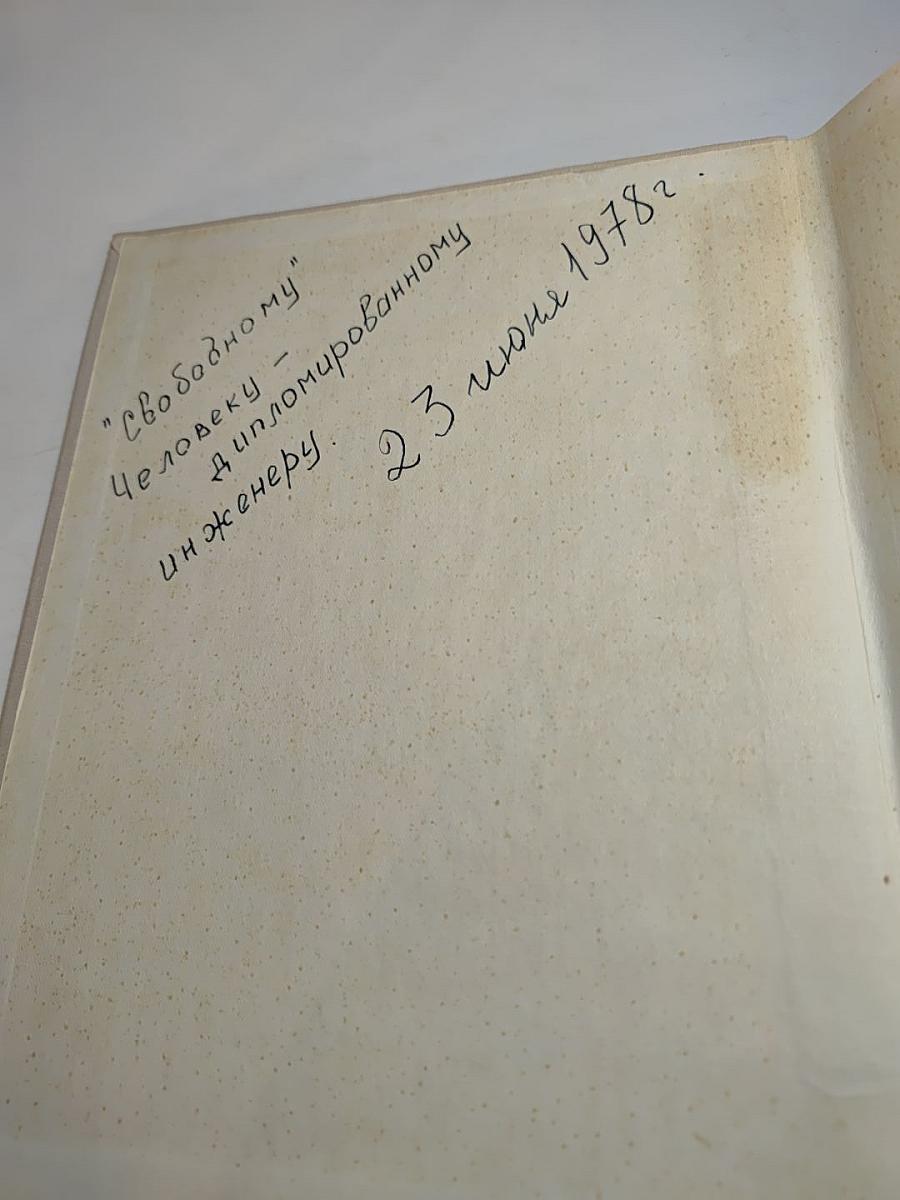 "Свободному"
Человеку –
дипломированному
инженеру.
23 июня 1978 г.